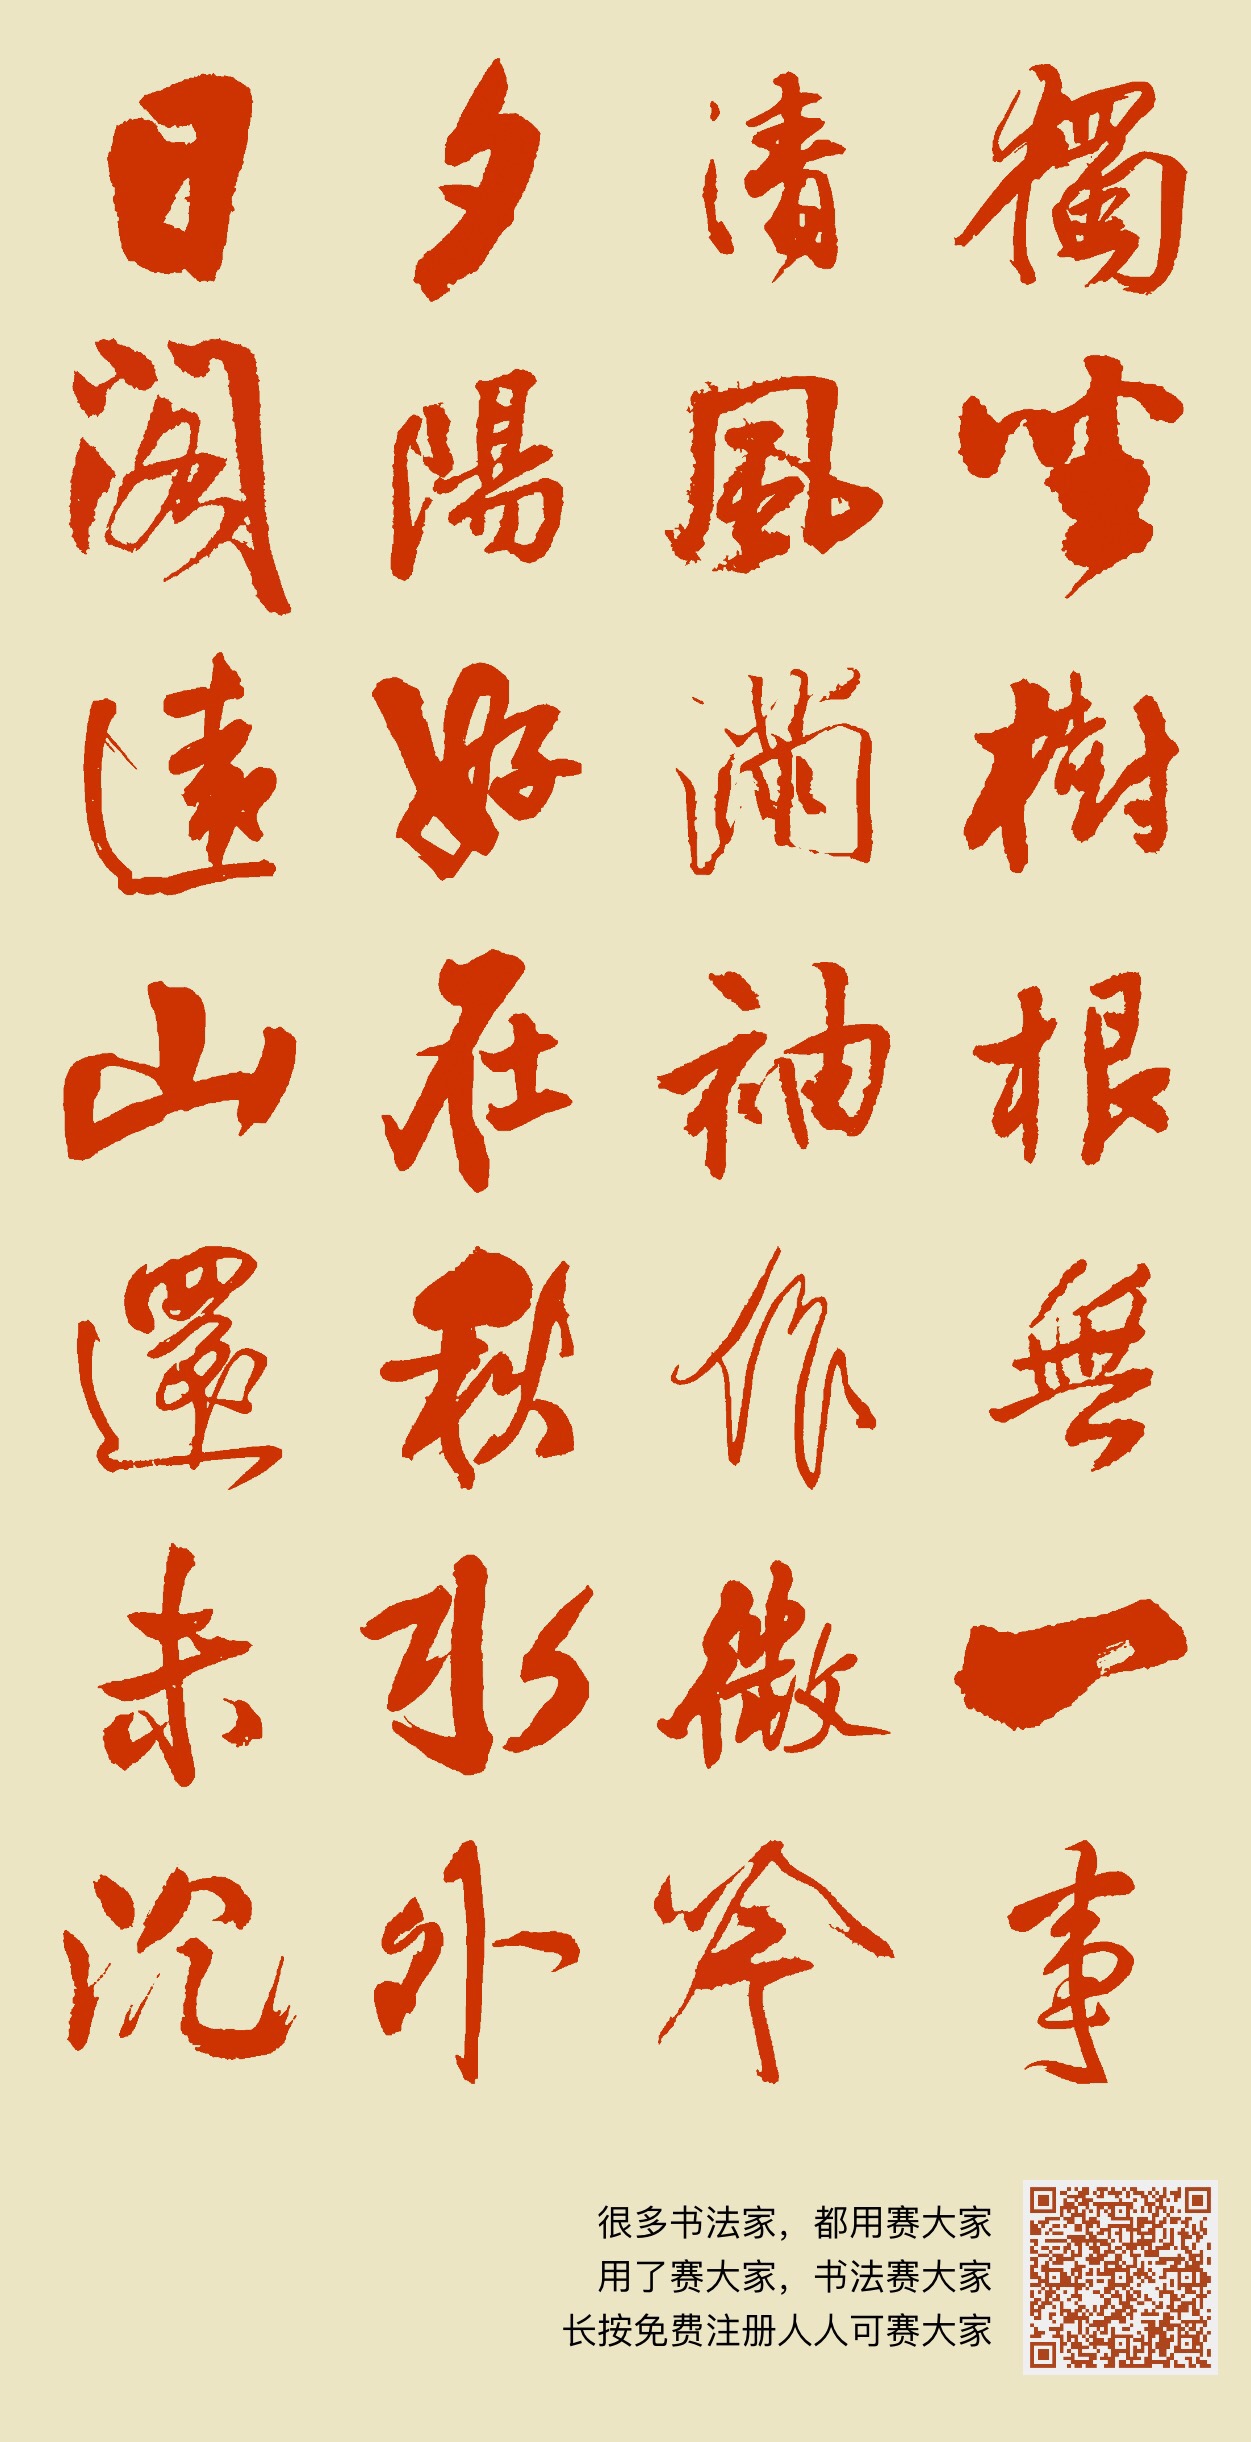 獨坐樹根無一事
清風滿袖作微吟
夕陽好在秋水外
日閣遠山還未沉
很多书法家，都用赛大家
用了赛大家，书法赛大家
长按免费注册人人可赛大家